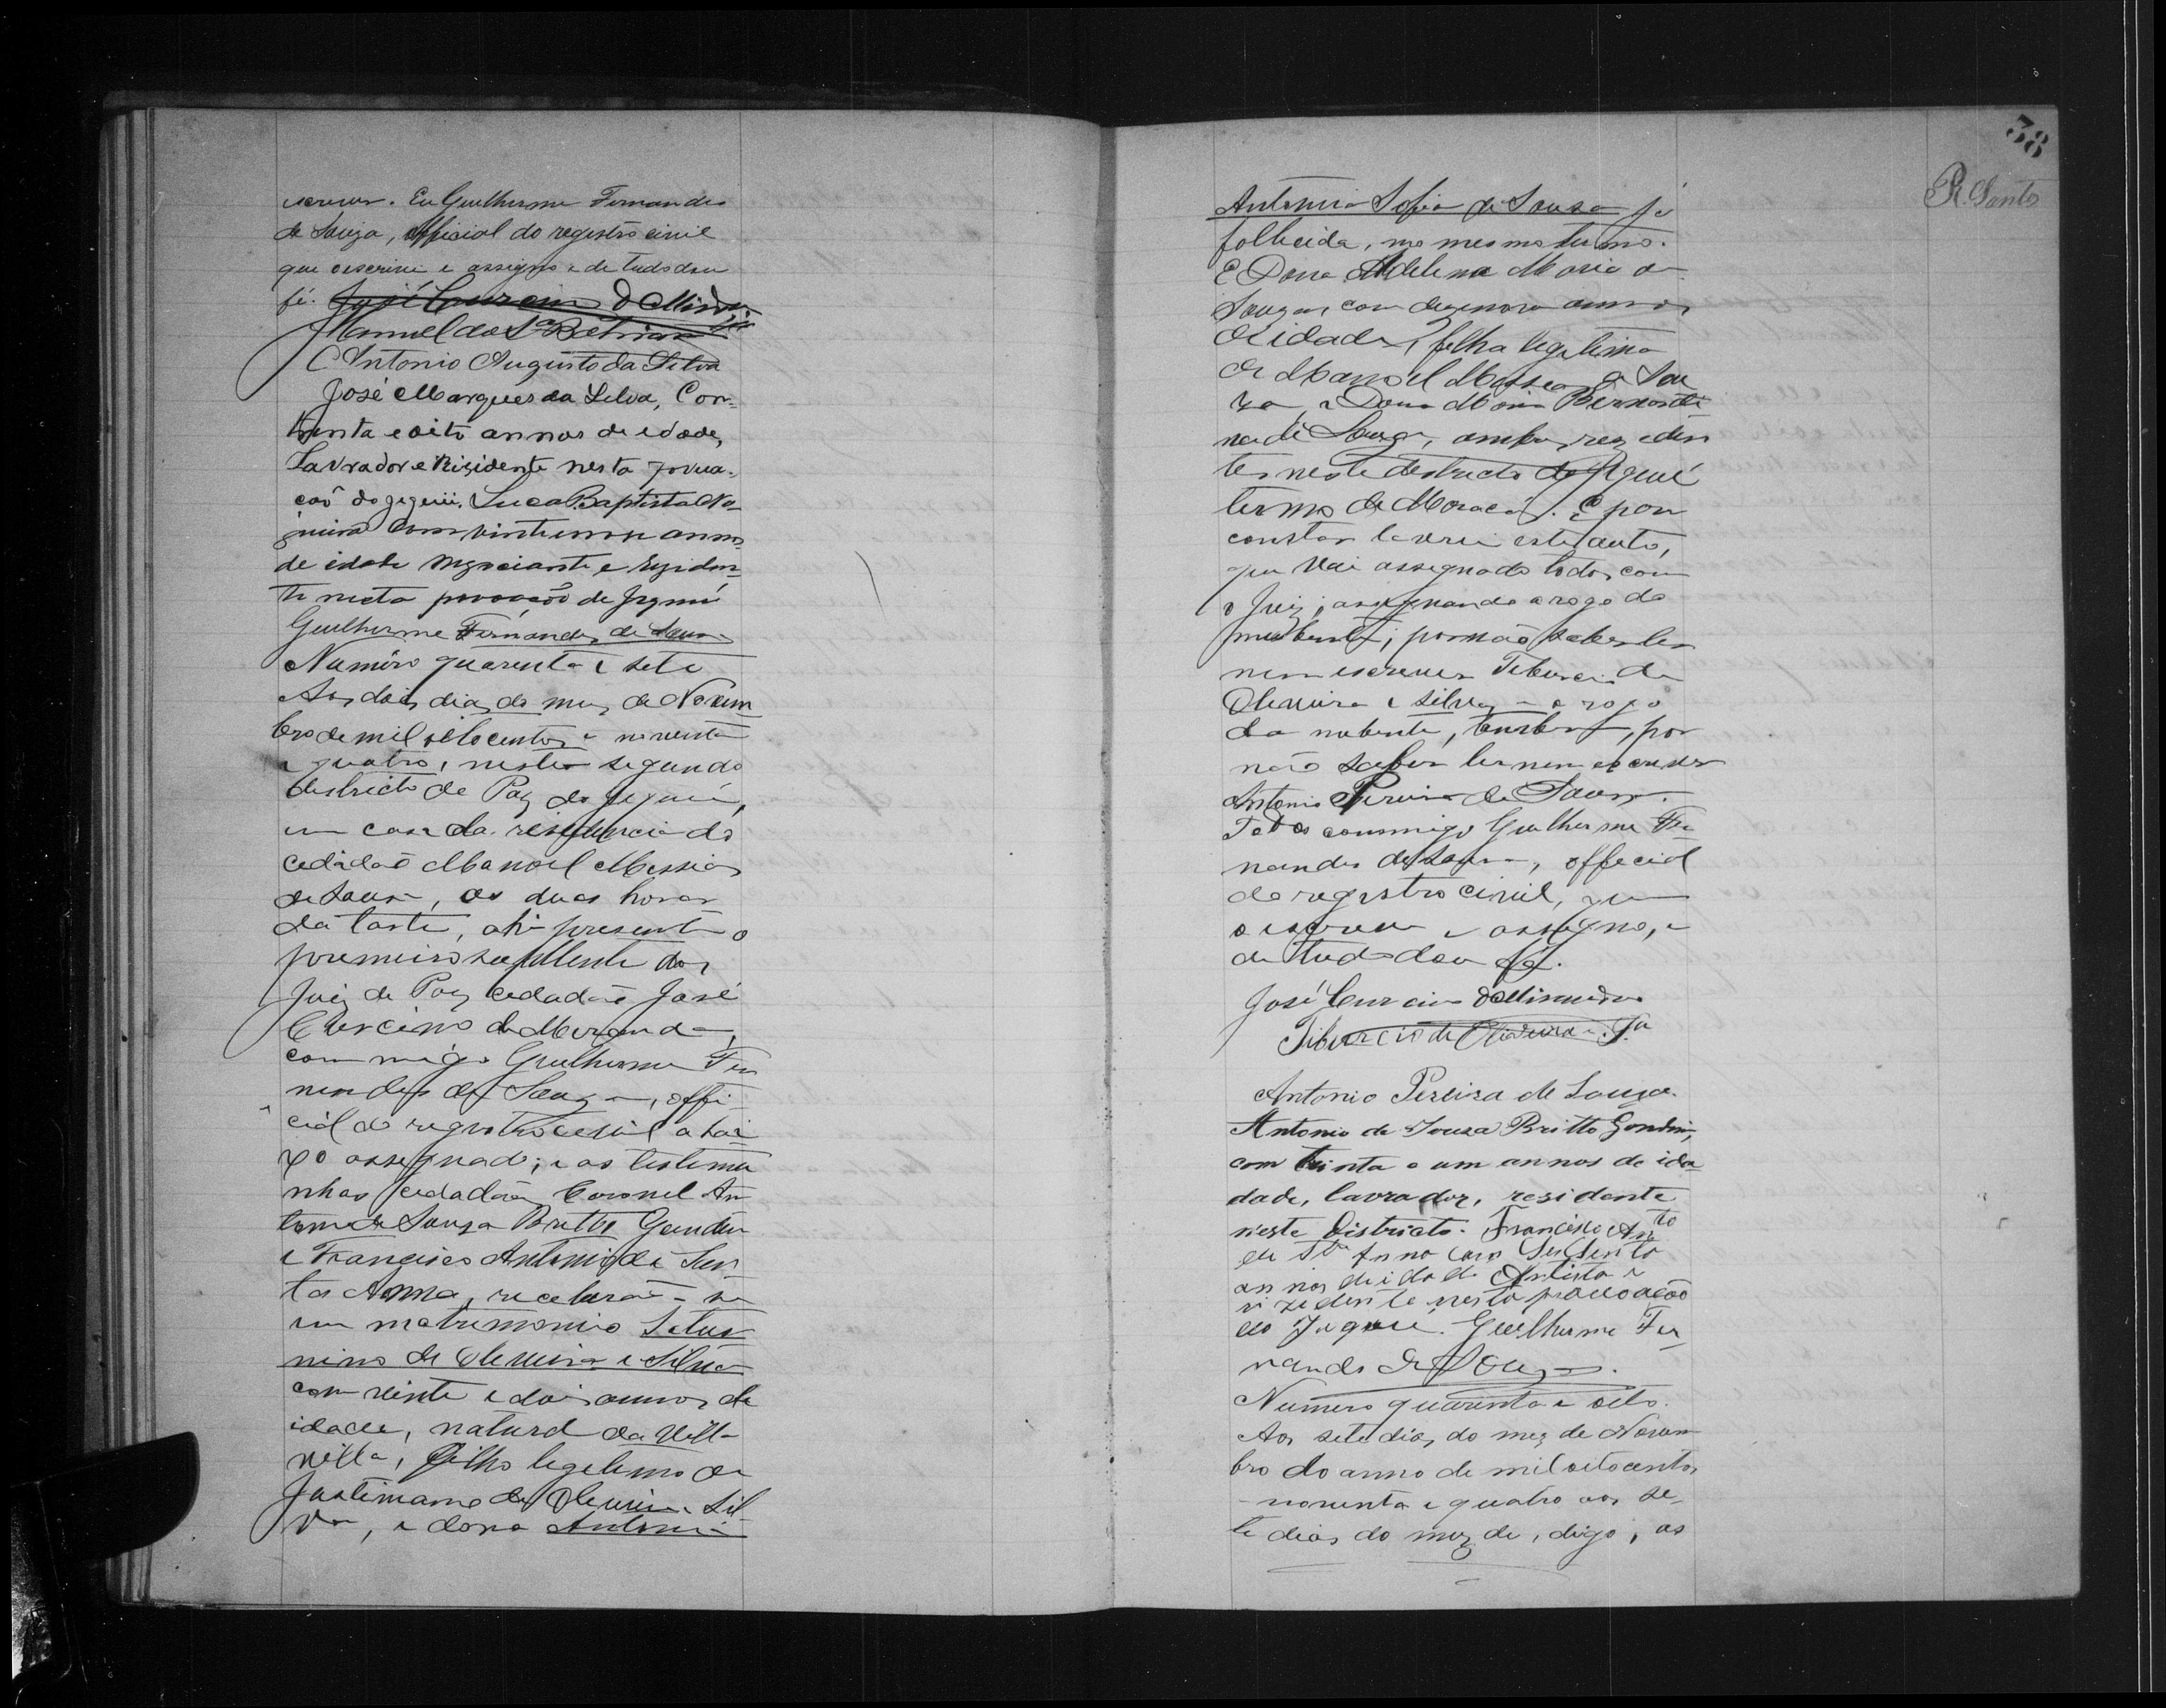 escrever. Eu Guilherme Fernandes
de Souza, official do registro civil
que o escrivi e assigno e de tudo dou
fé. José Curcino de Miranda
Manuel dos
Antonio Augusto da Silva
José Marques da Silva, Com
trinta e oito annos de idade,
Lavrador e Rizidente nesta povua-
caõ do Jequiii. Luca Baptista No
gueira com vinte um annos
de idade negociante e reziden
te nesta povoacaõ de Jequié
Guilherme Fernandes de Souza
Numéro quarenta e sete
Aos dois dias do mez de Novem
bro de mil oitocentos e noventa
e quatro, neste segundo
destricto de Paz do Jequié,
em casa da residencia do
cedadaõ Manoel Messias
de Souza, as duas horas
da tarde, ahi presente o
premeiro supplente dos
Juiz de Paz cedadaõ José
Curcino de Meranda,
commigo Guilherme Fer
nandes de Souza, offi-
cial do registro cevil abai
xo assegnado; e as testemu
nhas cedadãos Coronel An
tonio de Souza Britto Gondin
e Francisco Antonio de San
ta Anna, receberaõ-se
em matrimonio Satur
nino de Oleveira e Silva
com vinte e dois annos de
idade, natural da Villa
 filho legetimo de
Justiniano de Oleveira Sil
va, e dona Antonia
38
R. Santos
Antonia Sofia de Sousa já
fallecida, no mesmo termo.
E Dona Adelina Maria de
Souza, com dezenove annos
de idade, filha legetima
de Manoel Messias de Sou
za, e Dona Maria Bernardi
na de Souza, ambos reseden
tes neste destricto de Jequié
termo de Maracás. E para
constar lavrei este auto,
que vai assegnado todos com
o Juiz; assegnando a rogo do
nubente, por não saber ler
nem escrever Teburcio de
Oleveira e Silva, e a rogo
da nubente, tambem, por
não saber ler nem escrever
Antonio Pereira de Souza.
Todos commigo Guilherme Fer
nandes de Souza, offecial
do registro civil, que
o escrevi e assegno, e
de tudo dou fé.
José Curcino de Miranda
Tiburcio de Oliveira e Sa
Antonio Pereira de Souza
Antonio de Souza Britto Gondim,
com trinta e um annos de ida
dade, lavrador, residente
neste Districto. Francisco Anto
de Sta Anna com Sesenta
annos de idade Artista e
rezidente nesta povoação
do Jequié. Guilherme Fer
nandes de Souza.
Numero quarenta e oito.
Aos sete dias do mez de Novem
bro do anno de mil oitocentos
noventa e quatro aos se-
te dias do mez de, digo, as